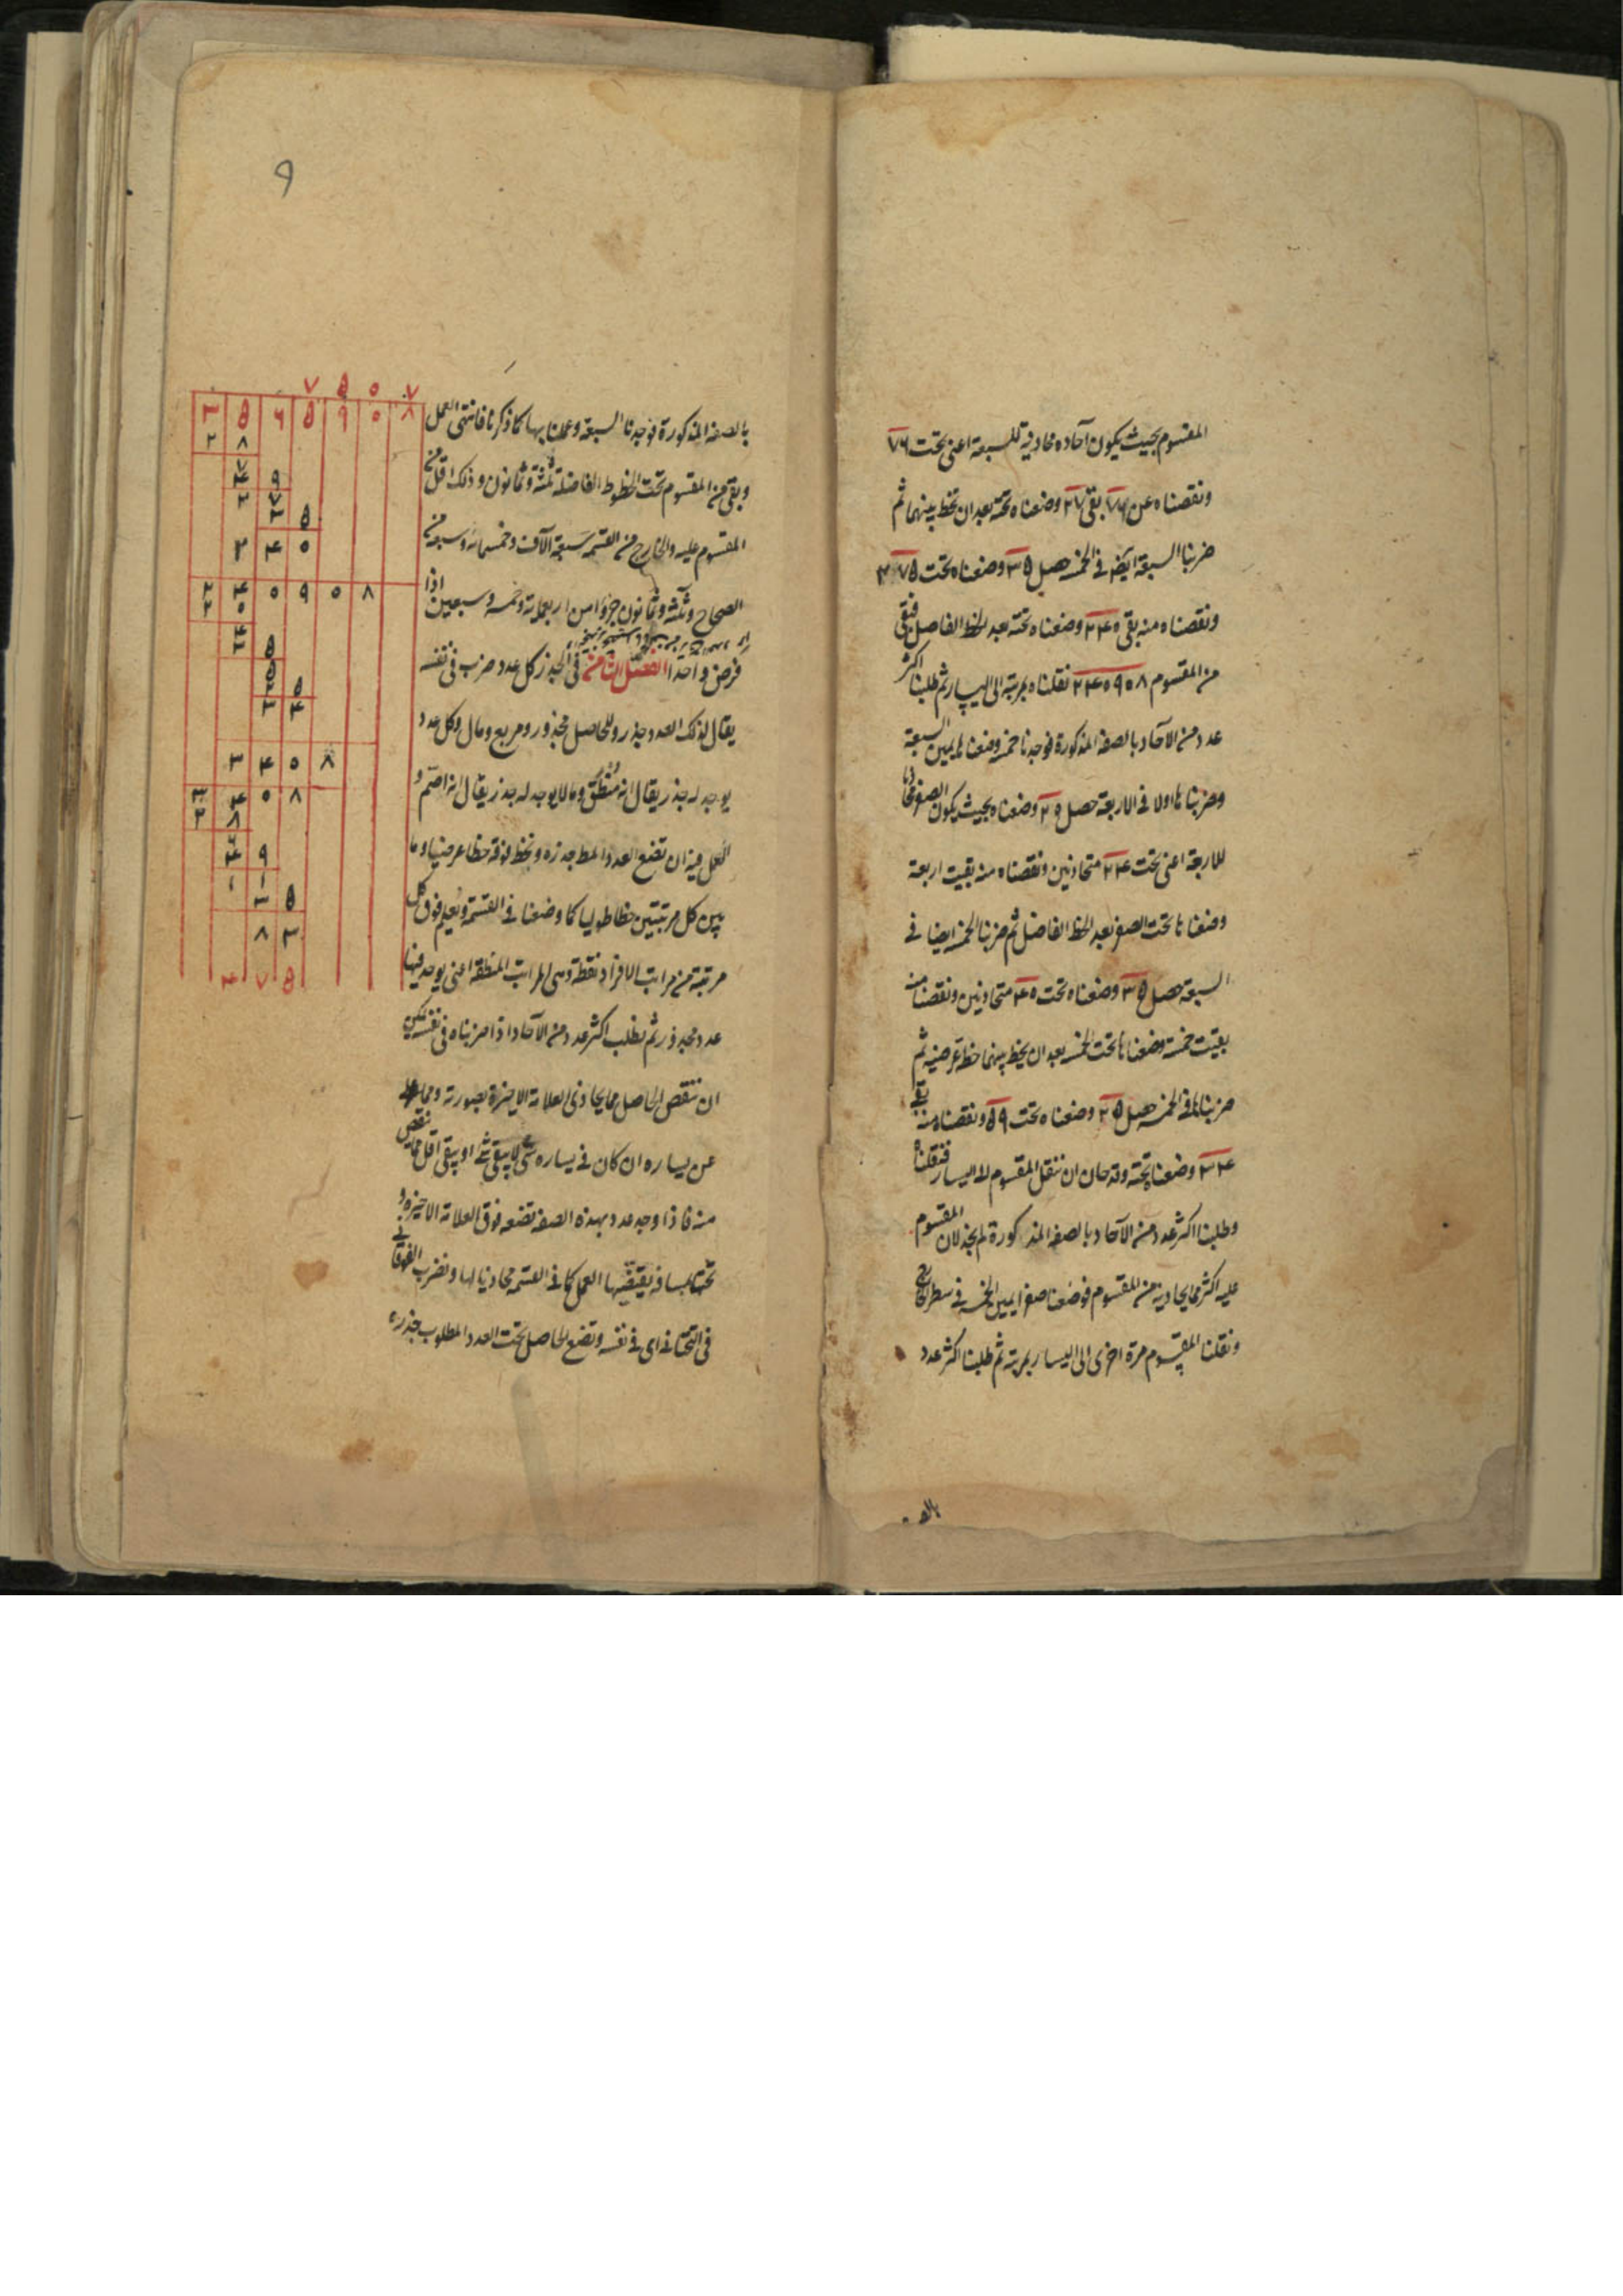 المقسوم بحيث يكون آحاده محاذية للسبعة اعنى تحت ٧٦
ونقصناه عن ٧٦ بقى ٢٧ وضعناه تحته بعد ان نخط بينهما ثم
ضربنا السبعة ايضا فى الخمسة حصل ٣٥ وضعناه تحت ٣٧٥
ونقصناه منه بقى ٣٤٠ وضعناه تحته بعد الخط الفاصل فبقى
من المقسوم ٣٤٠٩٠٨ نقلناه بمرتبة الى اليسار ثم طلبنا اكثر
عدد من الآحاد بالصفة المذكورة فوجدنا خمسة وضعنا ليمين السبعة
وضربناها اولا فى الاربعة حصل ٢٠ وضعناه بحيث يكون الصفر محاذيا
للاربعة اعنى تحت ٢٤ متحاذيين ونقصناه منه بقيت اربعة
وضعناها تحت الصفر بعد الخط الفاصل ثم ضربنا الخمسة ايضا فى
السبعة حصل ٣٥ وضعناه تحت ٤٠ متحاذيين ونقصناه منه
بقيت خمسة وضعناها تحت الخمسة بعد ان يخط بينهما خط عرضية ثم
ضربناها فى الخمسة حصل ٢٥ وضعناه تحت ٥٩ ونقصناه منه بقى
٣٤ وضعناه تحته وقد حان ان ننقل المقسوم الى اليسار فنقلناه
وطلبنا اكثر عدد من الآحاد بالصفة المذكورة لم نجد لان المقسوم
عليه اكثر مما يحاذيه من المقسوم فوضعنا صفرا يمين الخمسة فى سطر الخارج
ونقلنا المقسوم مرة اخرى الى اليسار بمرتبة ثم طلبنا اكثر عدد
بالصفة
٩
بالصفة المذكورة فوجدنا السبعة وعملنا بها كما ذكرنا فانتهى العمل
وبقى من المقسوم تحت الخطوط الفاصلة ثلثة وثمانون وذلك اقل من
المقسوم عليه والخارج من القسمة سبعة الآف وخمسمائة وسبعة من
الصحاح وثلثة وثمانون جزوا من اربعمائة وخمسة وسبعين اذا
فرض واحدا الفصل الثامن فى الجذر كل عدد ضرب فى نفسه
يقال لذلك العدد جذر وللحاصل مجذور ومربع ومال وكل عدد
يوجد له جذر يقال انه منطق وما لا يوجد له جذر يقال انه اصم و
العمل فيه ان تضع العدد المط جذره ونخط فوقه خطا عرضيا وما
بين كل مرتبتين خطا طوليا كما وضعنا فى القسمة ونعلم فوق كل
مرتبة من مراتب الافراد نقطة وهى المراتب المنطقة اعنى يوجد فيها
عدد مجذور ثم نطلب اكثر عدد من الآحاد اذا ضربناه فى نفسه يمكن
ان ننقص الحاصل مما يحاذى العلامة الاخيرة بصورته ومما
عن يساره ان كان فى يساره شئ لا يبقى شئ او يبقى اقل مما نقص
منه فاذا وجد عدد بهذه الصفة نضعه فوق العلامة الاخيرة و
تحتها بمسافة يقتضيها العمل كما فى القسمة محاذيا لها ونضرب الفوقانى
فى التحتانى اى فى نفسه ونضع الحاصل تحت العدد المطلوب جذره
٧ ٥ ٠ ٧
٣ ٥ ٦ ٥ ٩ ٠ ٨
٢ ٨
٧ ٩
٣ ٤ ٠
٣ ٤ ٠ ٩ ٠ ٨
٣ ٤ ٠ ٨
٣ ٤ ٠ ٨
٨ ٣
٤ ٧ ٥